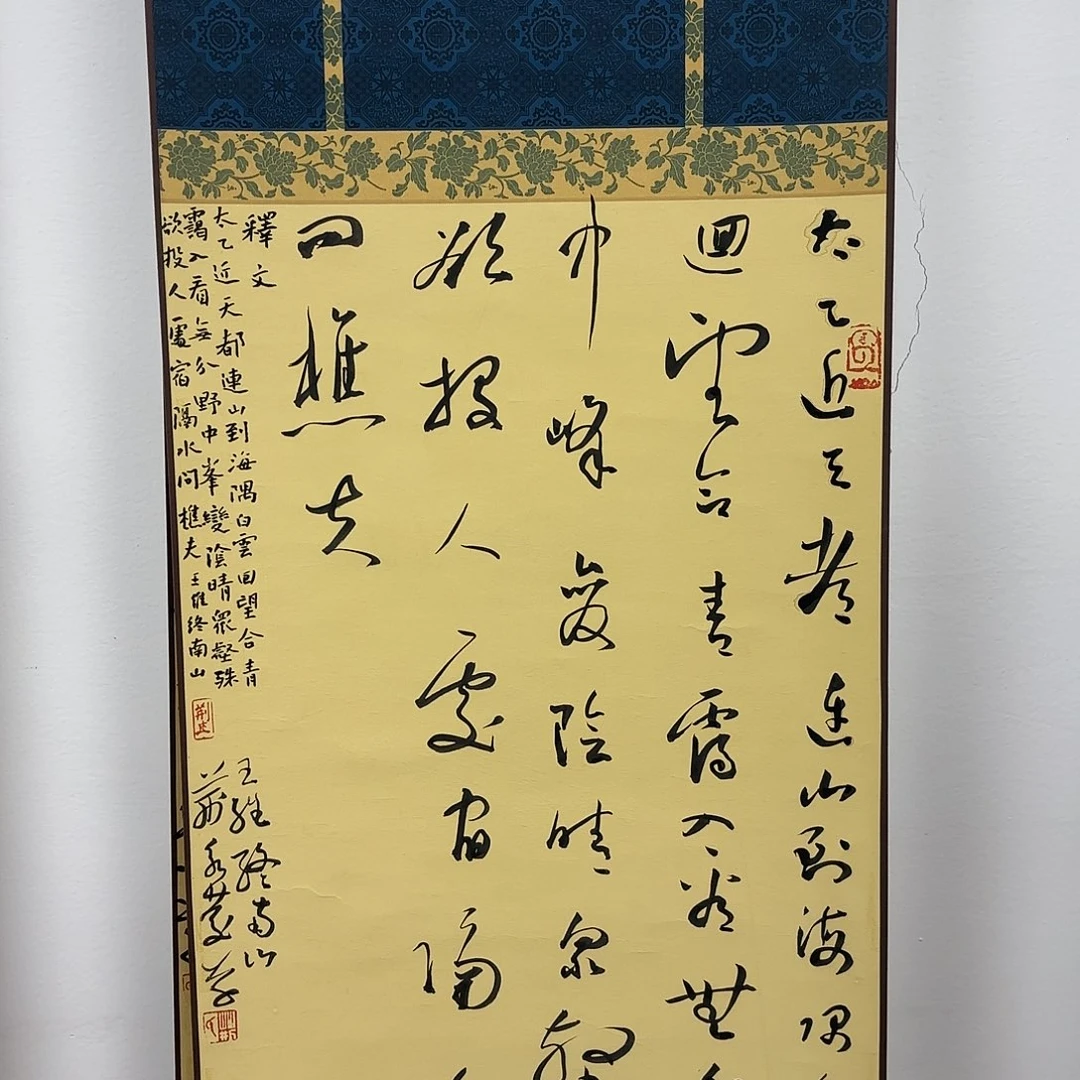 太乙近天都連山到海隅
迴望合青靄入看無
中峰變陰晴眾壑
欲投人處宿隔
問樵夫
釋文
太乙近天都連山到海隅白雲回望合青
靄入看無分野中峯變陰晴眾壑殊
欲投人處宿隔水問樵夫 王維終南山
王維終南山